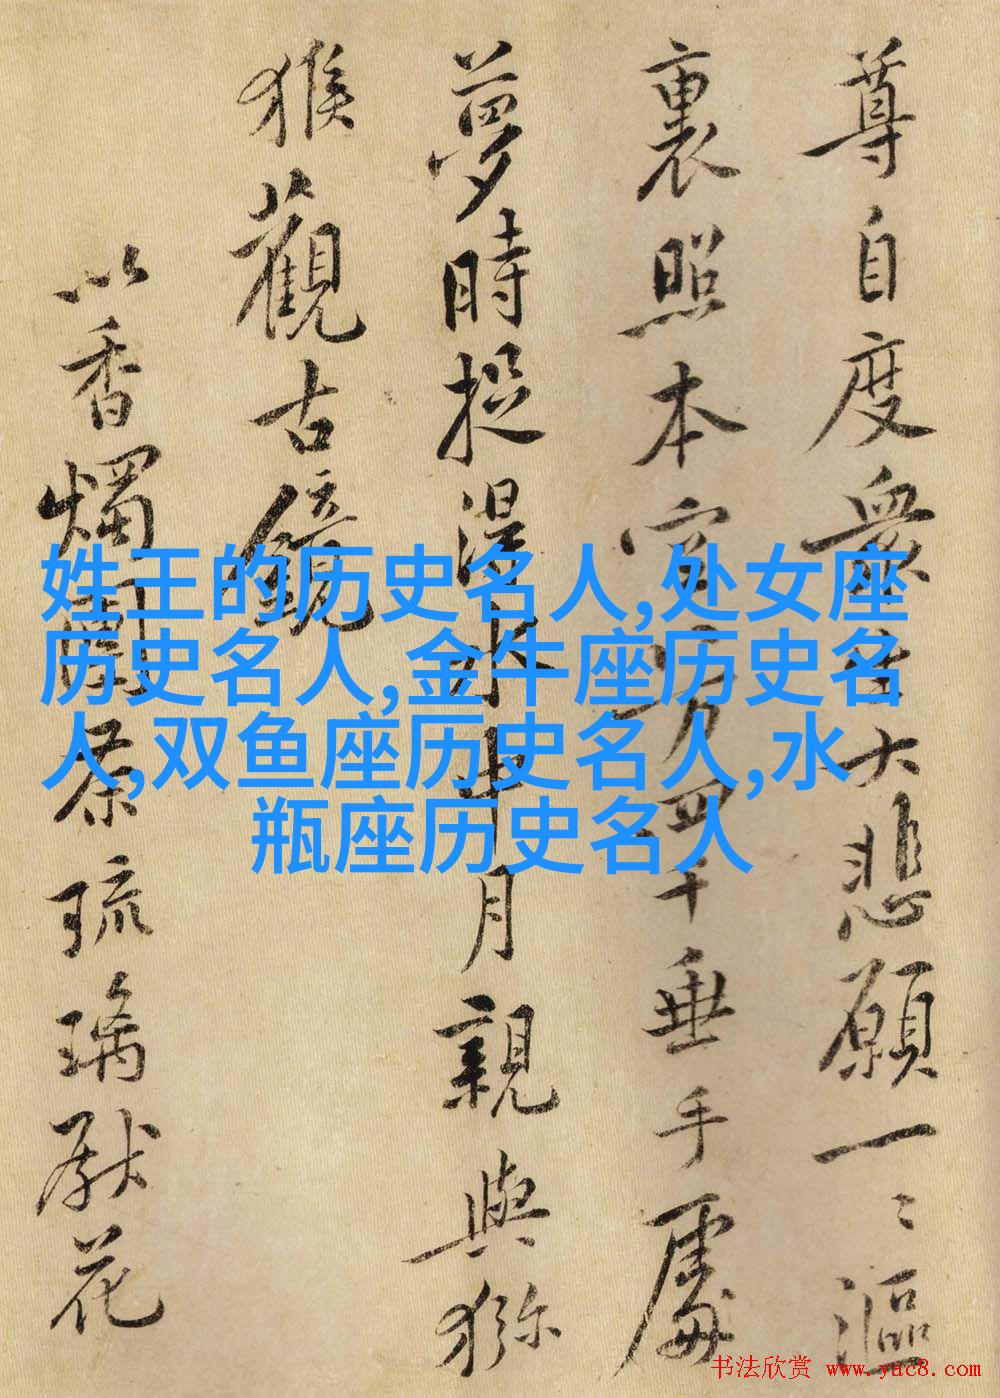 尊自度衆生大悲願一〻漚
裏照本四千垂手處
夢時捉得水中月親與獼
猴觀古鏡
以香燭團茶琉璃獻花
姓王的历史名人,处女座
历史名人,金牛座历史名
人,双鱼座历史名人,水
瓶座历史名人
书法欣赏 www.yac8.com